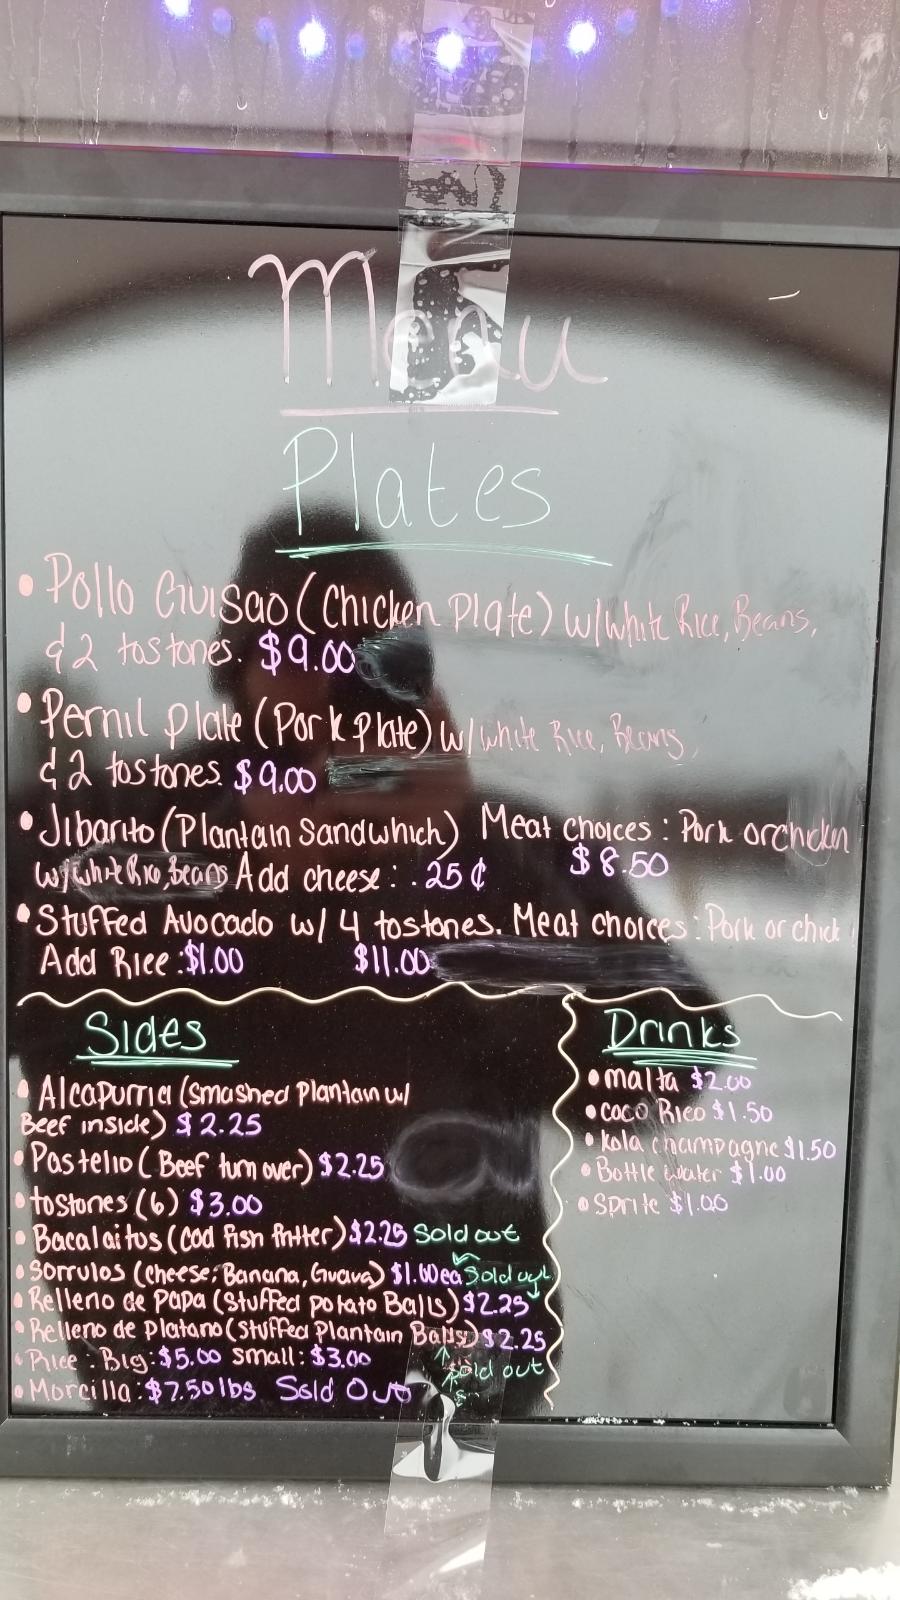 Menu
Plates
• Pollo Guisao (Chicken Plate) w/White Rice, Beans,
& 2 tostones. $9.00
• Pernil plate (Pork Plate) w/white Rice, Beans,
& 2 tostones. $9.00
• Jibarito (Plantain Sandwhich) Meat choices: Pork or chicken
w/white Rice, beans Add cheese: .25¢ $8.50
• Stuffed Avocado w/ 4 tostones. Meat choices: Pork or chick
Add Rice: $1.00 $11.00
Sides
• Alcapurria (smashed Plantain w/
Beef inside) $2.25
• Pastelio (Beef turn over) $2.25
• tostones (6) $3.00
• Bacalaitos (cod Fish fritter) $2.25 Sold out
• Sorrulos (cheese, Banana, Guava) $1.00 ea Sold out
• Relleno de Papa (Stuffed potato Balls) $2.25
• Relleno de Platano (Stuffed Plantain Balls) $2.25
• Rice: Big: $5.00 small: $3.00 Sold out
• Morcilla: $7.50 lbs Sold Out
Drinks
• malta $2.00
• coco Rico $1.50
• kola champagne $1.50
• Bottle water $1.00
• Sprite $1.00